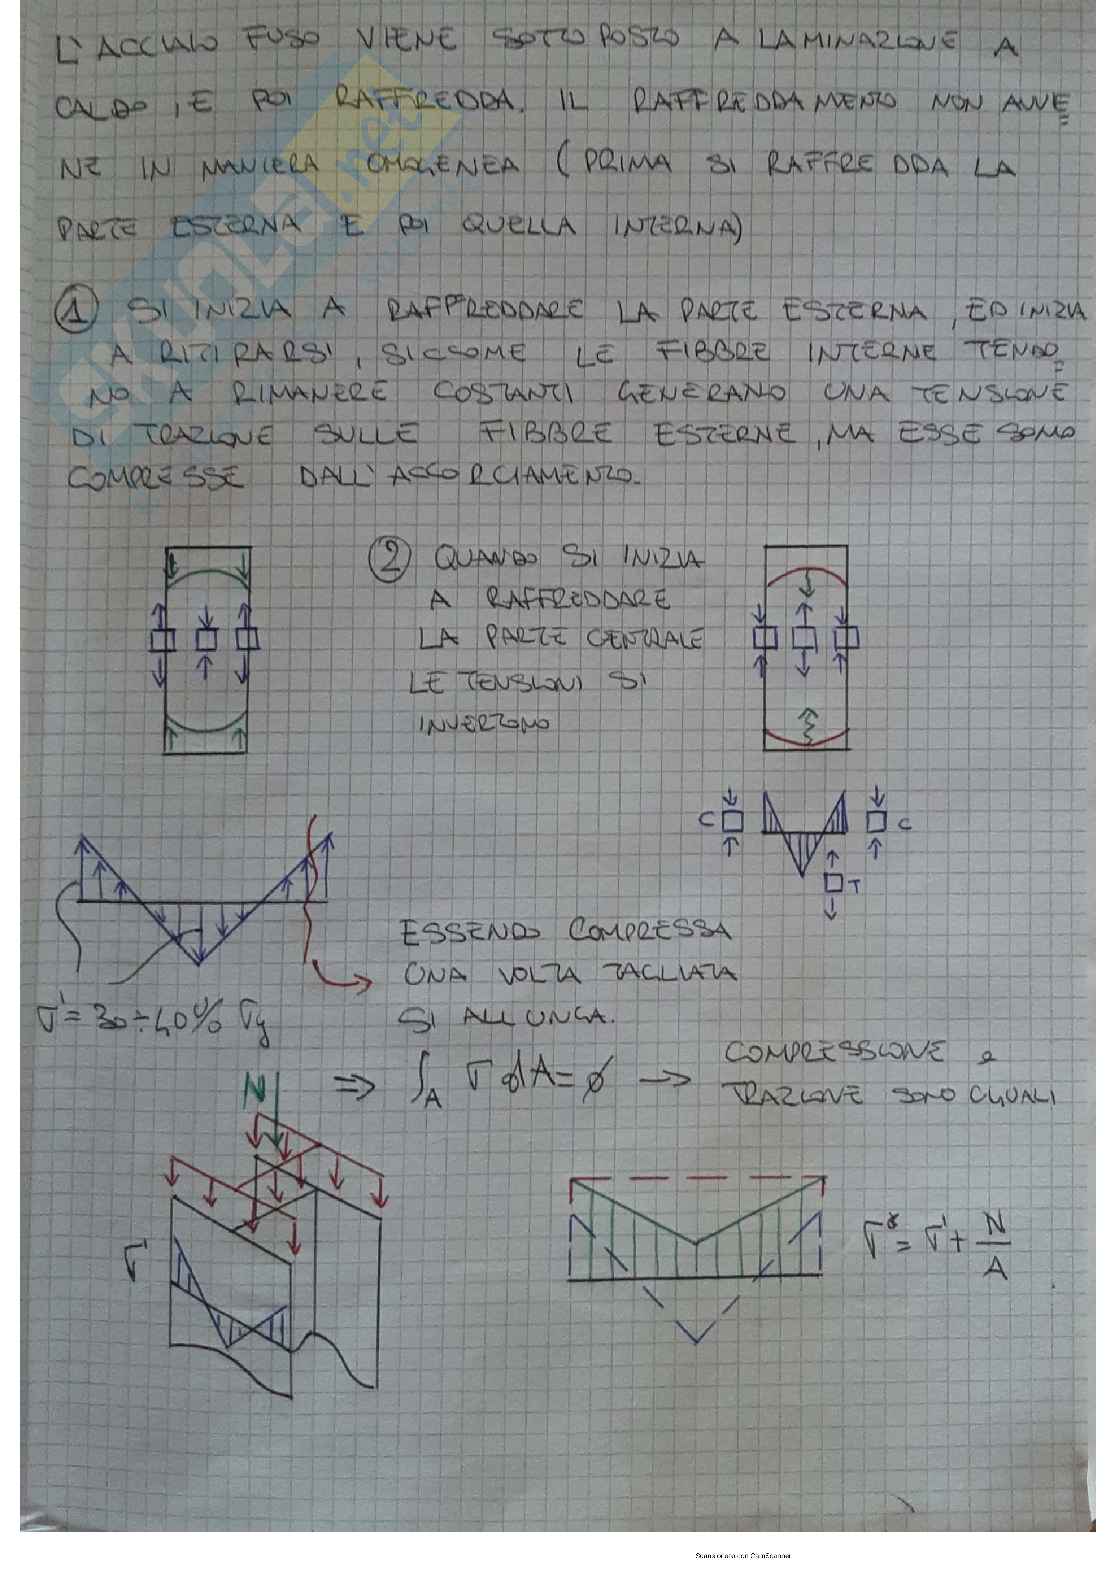 L'ACCIAIO FUSO VIENE SOTTOPOSTO A LAMINAZIONE A
CALDO, E POI RAFFREDDA. IL RAFFREDDAMENTO NON AVVE
NE IN MANIERA OMOGENEA (PRIMA SI RAFFREDDA LA
PARTE ESTERNA E POI QUELLA INTERNA)
① SI INIZIA A RAFFREDDARE LA PARTE ESTERNA, ED INIZIA
A RITIRARSI, SICCOME LE FIBBRE INTERNE TENDO
NO A RIMANERE COSTANTI GENERANO UNA TENSIONE
DI TRAZIONE SULLE FIBBRE ESTERNE, MA ESSE SONO
COMPRESSE DALL'ACCORCIAMENTO.
② QUANDO SI INIZIA
A RAFFREDDARE
LA PARTE CENTRALE
LE TENSIONI SI
INVERTONO
C C
T
ESSENDO COMPRESSA
UNA VOLTA TAGLIATA
SI ALLUNGA.
σ' = 30÷40% σy
N ⇒ ∫A σ dA = ∅ → COMPRESSIONE e
TRAZIONE SONO UGUALI
σ'
σ* = σ' + N/A
SKUOLA.net